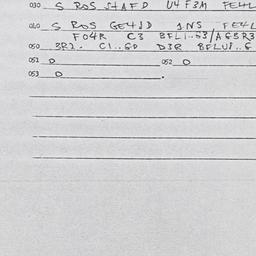 030 S ROS STAFD U4 F3M FE4L
040 S ROS GE4JD 1NS FE4L
FO4R C3 BFLI..G3/AGBR3
050 3R2. C1..GD D3R BFLU8..G
051 O 052 O
053 O .